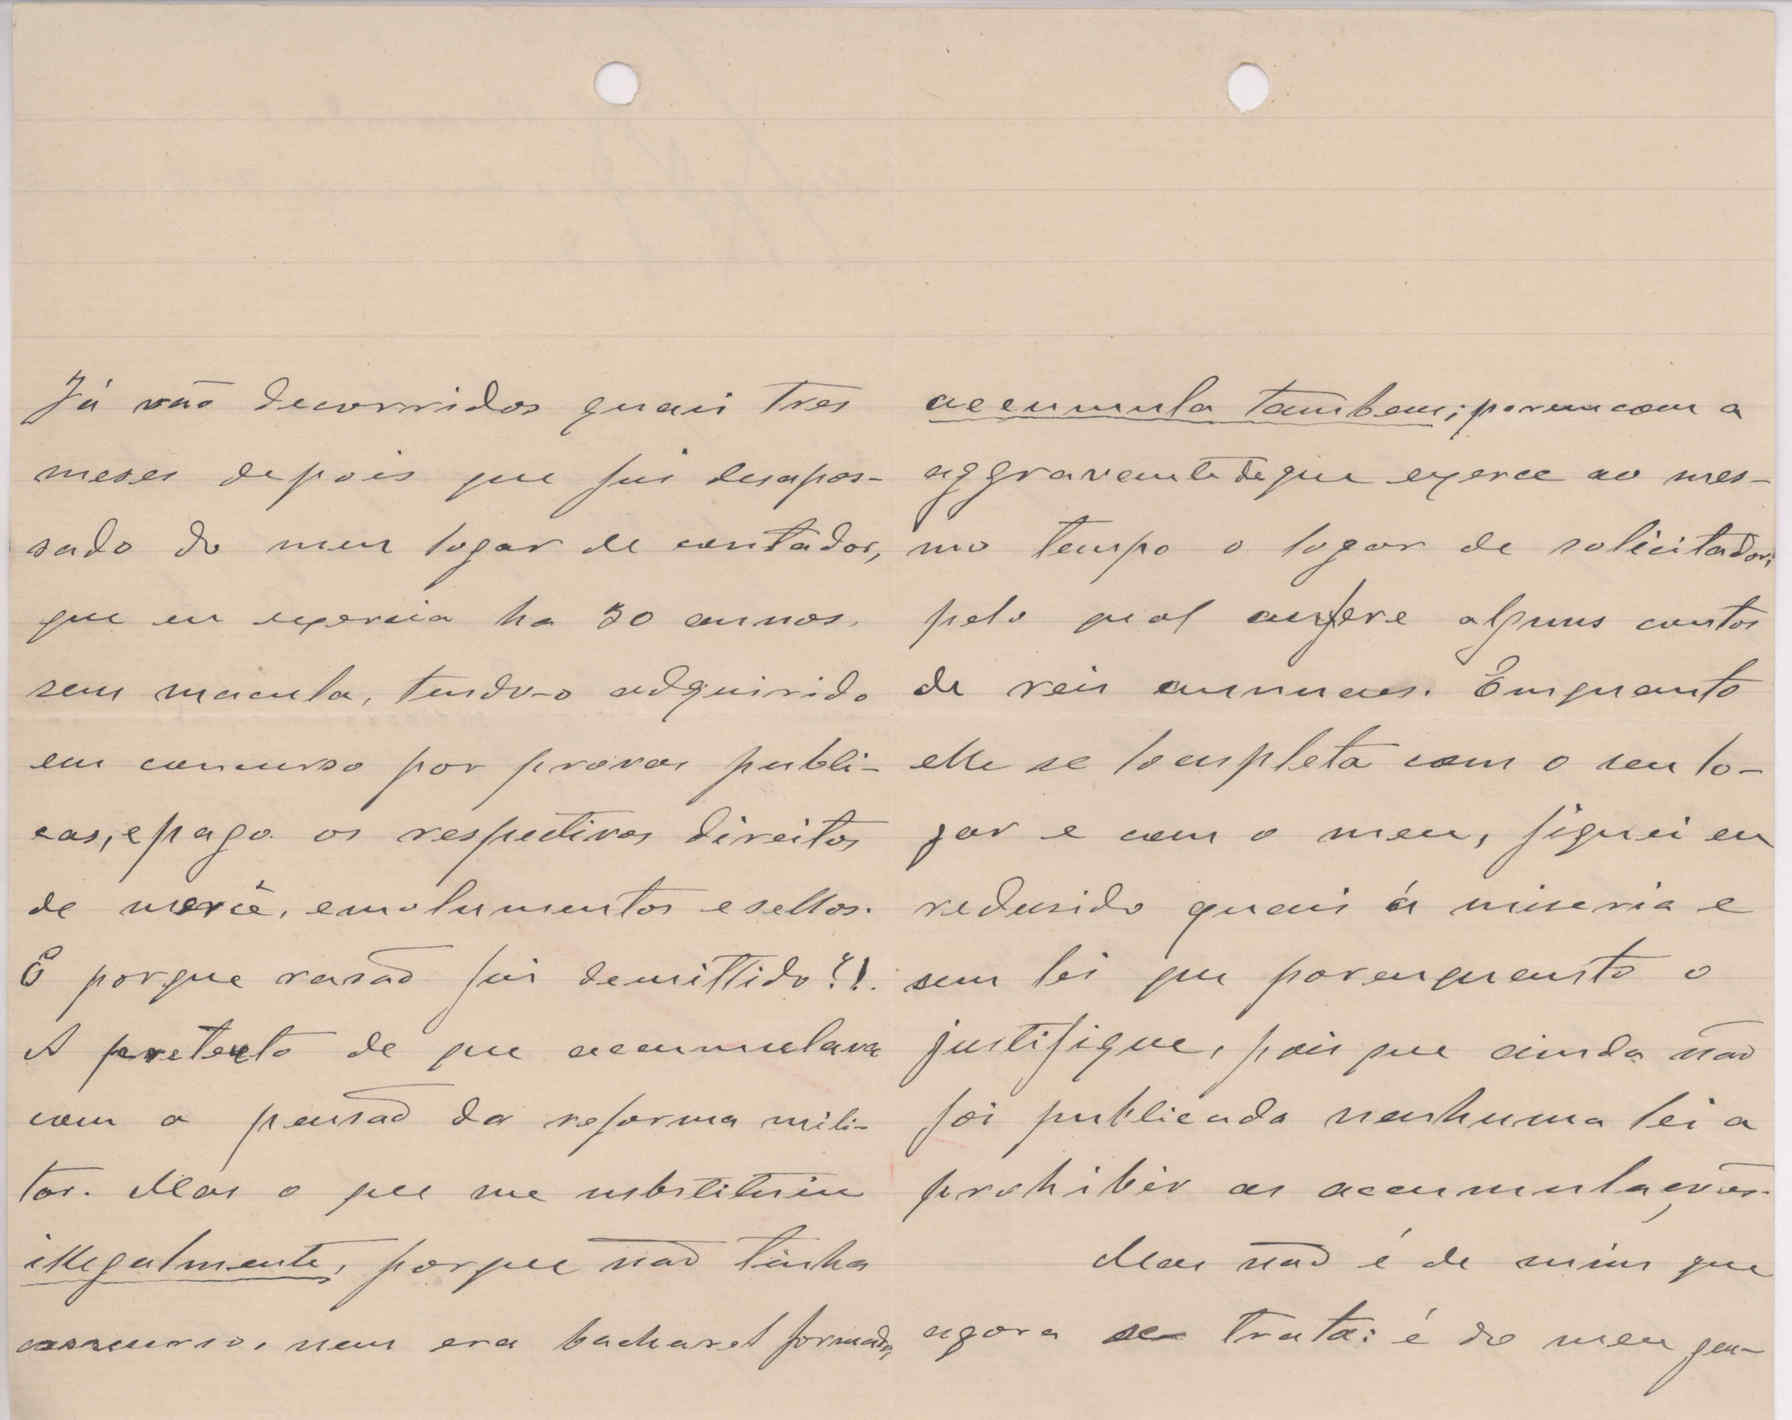 Já vão decorridos quasi tres
meses depois que fui desapos-
sado do meu logar de contador,
que eu exercia ha 30 annos.
sem macula, tendo-o adquirido
em concurso por provas publi-
cas, e pago os respectivos direitos
de mercê, emolumentos e sellos.
E porque rasão fui demittido?!.
A pretexto de que accumulava
com a pensão da reforma mili-
tar. Mas o que me substituiu
illegalmente, porque não tinha
concurso, nem era bacharel formado,
accumula tambem; porem com a
aggravante de que exerce ao mes-
mo tempo o logar de solicitador,
pelo qual aufere alguns contos
de reis annuaes. Emquanto
elle se locupleta com o seu lo-
gar e com o meu, fiquei eu
redusido quasi á miseria e
sem lei que porenquanto o
justifique, pois que ainda não
foi publicada nenhuma lei a
prohibir as accumulações.
Mas não é de mim que
agora se trata: é do meu gen-